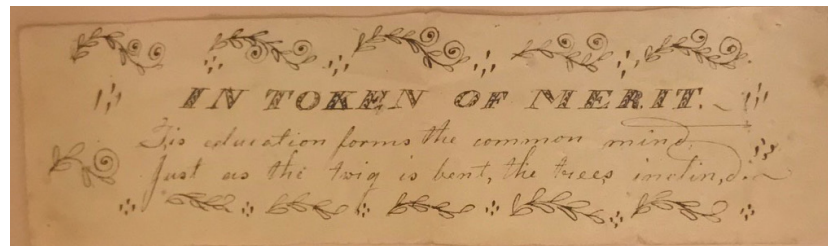 IN TOKEN OF MERIT.
Tis education forms the common mind,
Just as the twig is bent, the trees inclin,d.